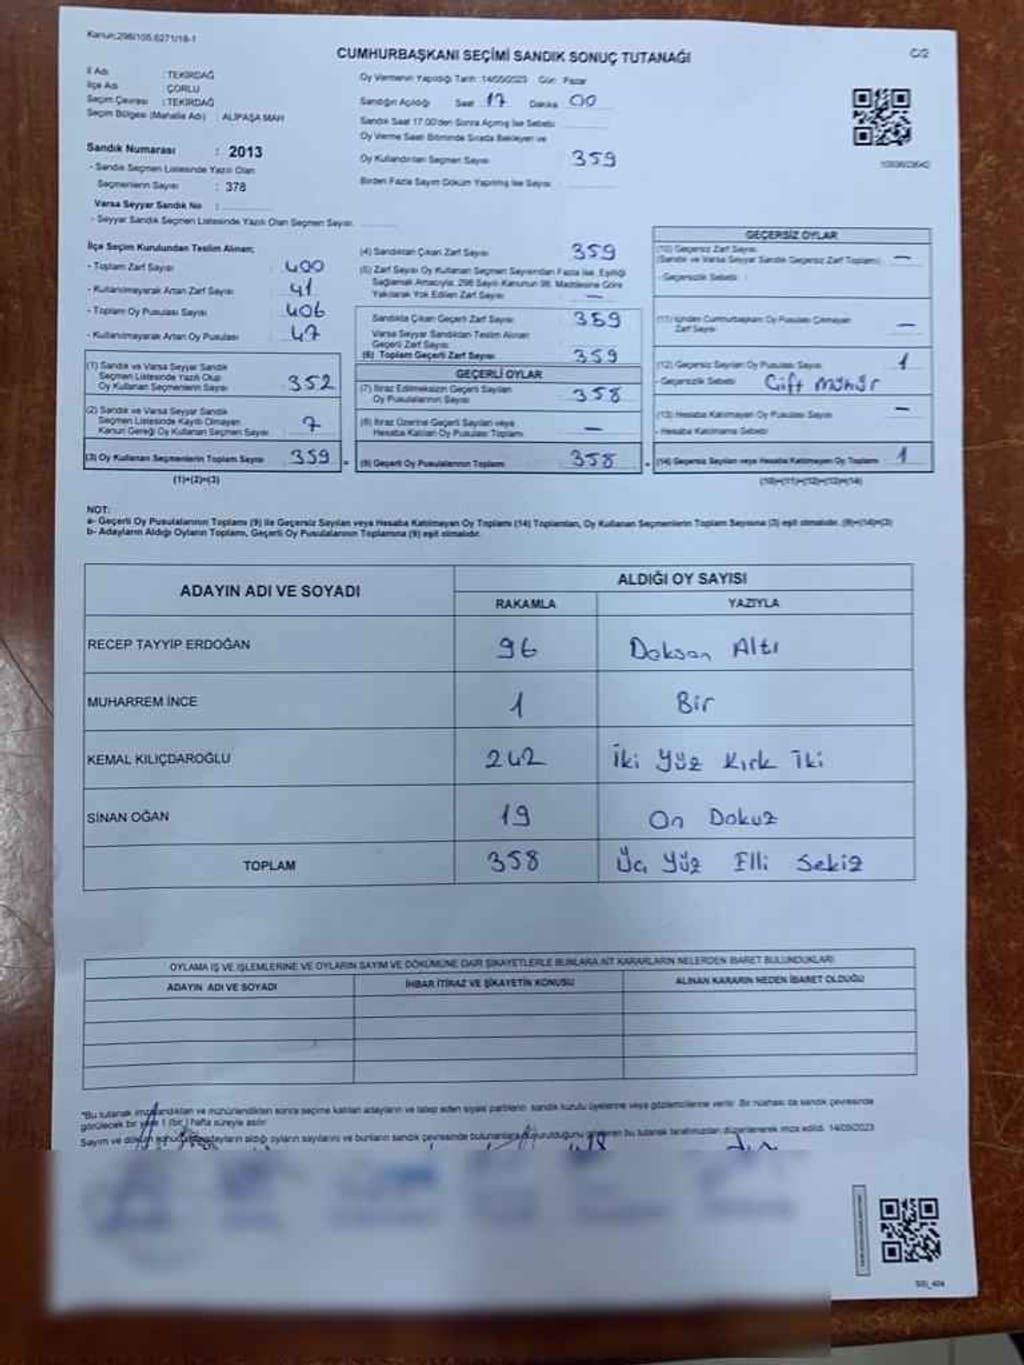 Kanun;298/105.6271/18-1
CUMHURBAŞKANI SEÇİMİ SANDIK SONUÇ TUTANAĞI
C/2
İl Adı : TEKİRDAĞ
İlçe Adı : ÇORLU
Seçim Çevresi : TEKİRDAĞ
Seçim Bölgesi (Mahalle Adı) : ALİPAŞA MAH
Sandık Numarası : 2013
- Sandık Seçmen Listesinde Yazılı Olan
Seçmenlerin Sayısı : 378
Varsa Seyyar Sandık No :
- Seyyar Sandık Seçmen Listesinde Yazılı Olan Seçmen Sayısı
Oy Vermenin Yapıldığı Tarih :14/05/2023 Gün: Pazar
Sandığın Açıldığı Saat 17 Dakika 00
Sandık Saat 17.00'den Sonra Açılmış İse Sebebi
Oy Verme Saati Bitiminde Sırada Bekleyen ve
Oy Kullandırılan Seçmen Sayısı 359
Birden Fazla Sayım Döküm Yapılmış İse Sayısı
İlçe Seçim Kurulundan Teslim Alınan;
- Toplam Zarf Sayısı 400
- Kullanılmayarak Artan Zarf Sayısı 41
- Toplam Oy Pusulası Sayısı 406
- Kullanılmayarak Artan Oy Pusulası 47
(1) Sandık ve Varsa Seyyar Sandık
Seçmen Listesinde Yazılı Olup
Oy Kullanan Seçmenlerin Sayısı 352
(2) Sandık ve Varsa Seyyar Sandık
Seçmen Listesinde Kayıtlı Olmayan
Kanun Gereği Oy Kullanan Seçmen Sayısı 7
(3) Oy Kullanan Seçmenlerin Toplam Sayısı 359
(1)+(2)=(3)
(4) Sandıktan Çıkan Zarf Sayısı 359
(5) Zarf Sayısı Oy Kullanan Seçmen Sayısından Fazla İse, Eşitliği
Sağlamak Amacıyla, 298 Sayılı Kanunun 98. Maddesine Göre
Yakılarak Yok Edilen Zarf Sayısı —
Sandıkta Çıkan Geçerli Zarf Sayısı 359
Varsa Seyyar Sandıktan Teslim Alınan
Geçerli Zarf Sayısı
(6) Toplam Geçerli Zarf Sayısı 359
GEÇERLİ OYLAR
(7) İtiraz Edilmeksizin Geçerli Sayılan
Oy Pusulalarının Sayısı 358
(8) İtiraz Üzerine Geçerli Sayılan veya
Hesaba Katılan Oy Pusulası Toplamı —
(9) Geçerli Oy Pusulalarının Toplamı 358
GEÇERSİZ OYLAR
(10) Geçersiz Zarf Sayısı
(Sandık ve Varsa Seyyar Sandık Geçersiz Zarf Toplamı) —
- Geçersizlik Sebebi :
(11) İçinden Cumhurbaşkanı Oy Pusulası Çıkmayan
Zarf Sayısı —
(12) Geçersiz Sayılan Oy Pusulası Sayısı 1
- Geçersizlik Sebebi Çift mühür
(13) Hesaba Katılmayan Oy Pusulası Sayısı —
- Hesaba Katılmama Sebebi
(14) Geçersiz Sayılan veya Hesaba Katılmayan Oy Toplamı 1
(10)+(11)+(12)+(13)=(14)
NOT:
a- Geçerli Oy Pusulalarının Toplamı (9) ile Geçersiz Sayılan veya Hesaba Katılmayan Oy Toplamı (14) Toplamları, Oy Kullanan Seçmenlerin Toplam Sayısına (3) eşit olmalıdır. (9)+(14)=(3)
b- Adayların Aldığı Oyların Toplamı, Geçerli Oy Pusulalarının Toplamına (9) eşit olmalıdır.
ADAYIN ADI VE SOYADI
ALDIĞI OY SAYISI
RAKAMLA YAZIYLA
RECEP TAYYİP ERDOĞAN 96 Doksan Altı
MUHARREM İNCE 1 Bir
KEMAL KILIÇDAROĞLU 242 İki Yüz Kırk İki
SİNAN OĞAN 19 On Dokuz
TOPLAM 358 Üç Yüz Elli Sekiz
OYLAMA İŞ VE İŞLEMLERİNE VE OYLARIN SAYIM VE DÖKÜMÜNE DAİR ŞİKAYETLERLE BUNLARA AİT KARARLARIN NELERDEN İBARET BULUNDUKLARI
ADAYIN ADI VE SOYADI İHBAR İTİRAZ VE ŞİKAYETİN KONUSU ALINAN KARARIN NEDEN İBARET OLDUĞU
*Bu tutanak imzalandıktan ve mühürlendikten sonra seçime katılan adayların ve talep eden siyasi partilerin sandık kurulu üyelerine veya gözlemcilerine verilir. Bir nüshası da sandık çevresinde
görülecek bir yere 1 (bir) hafta süreyle asılır.
Sayım ve döküm adayların aldığı oyların sayılarını ve bunların sandık çevresinde bulunanlara duyurulduğunu bu tutanak tarafımızdan düzenlenerek imza edildi. 14/05/2023